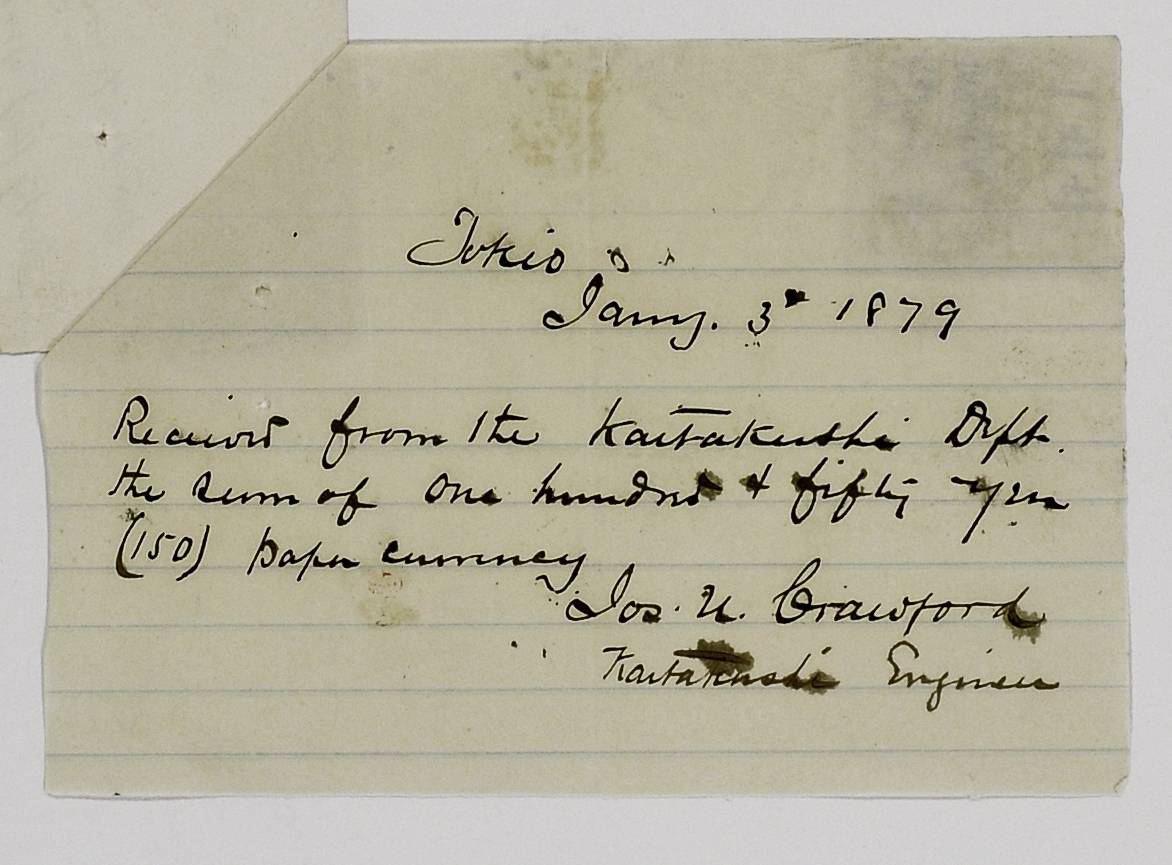 Tokio
Jany. 3d 1879
Received from the Kaitakushi Dept.
the sum of one hundred & fifty yen
(150) paper currency
Jos. U. Crawford
Kaitakushi Engineer